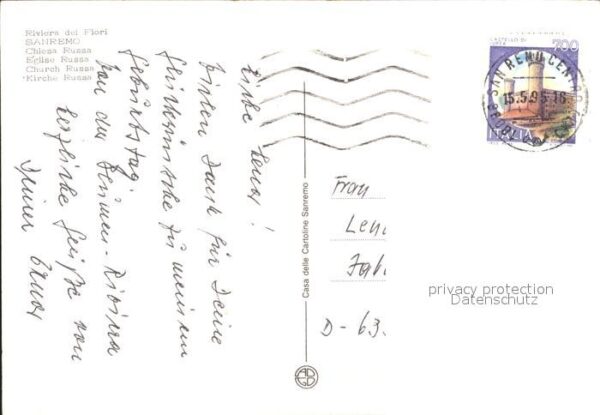 Riviera dei Fiori
SANREMO
Chiesa Russa
Eglise Russa
Church Russa
Kirche Russa
Liebe Lenor!
Vielen Dank für Deine
Glückwünsche zu meinem
Geburtstag.
Von der Blumen-Riviera
herzliche Grüße von
Deiner
Casa delle Cartoline Sanremo
Frau
D - 63
CASTELLO DI
700
SANREMO CENTRO
15.5.95-16
ITALIA
privacy protection
Datenschutz